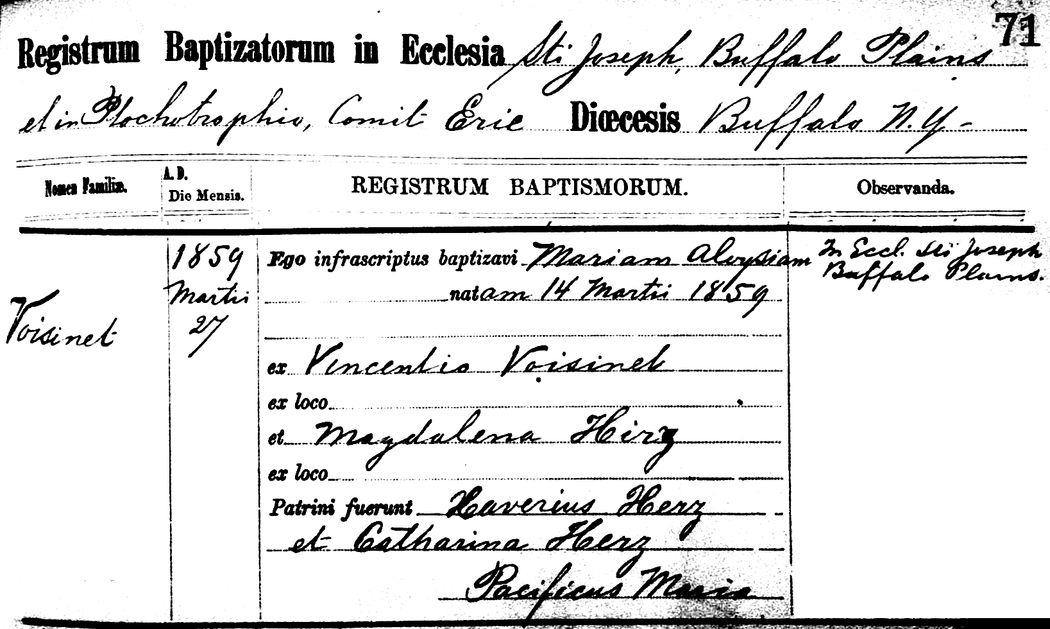 71
Registrum Baptizatorum in Ecclesia Sti Joseph, Buffalo Plains
et in Ptochotrophio, Comit Erie Diœcesis Buffalo N.Y-
Nomen Familiæ. A. D. Die Mensis. REGISTRUM BAPTISMORUM. Observanda.
1859 Ego infrascriptus baptizavi Mariam Aloysiam In Eccl. Sti Joseph
Martii natam 14 Martii 1859 Buffalo Plains.
Voisinet 27
ex Vincentio Voisinet
ex loco
et Magdalena Hirz
ex loco
Patrini fuerunt Xaverius Herz
et Catharina Herz
Pacificus Maria